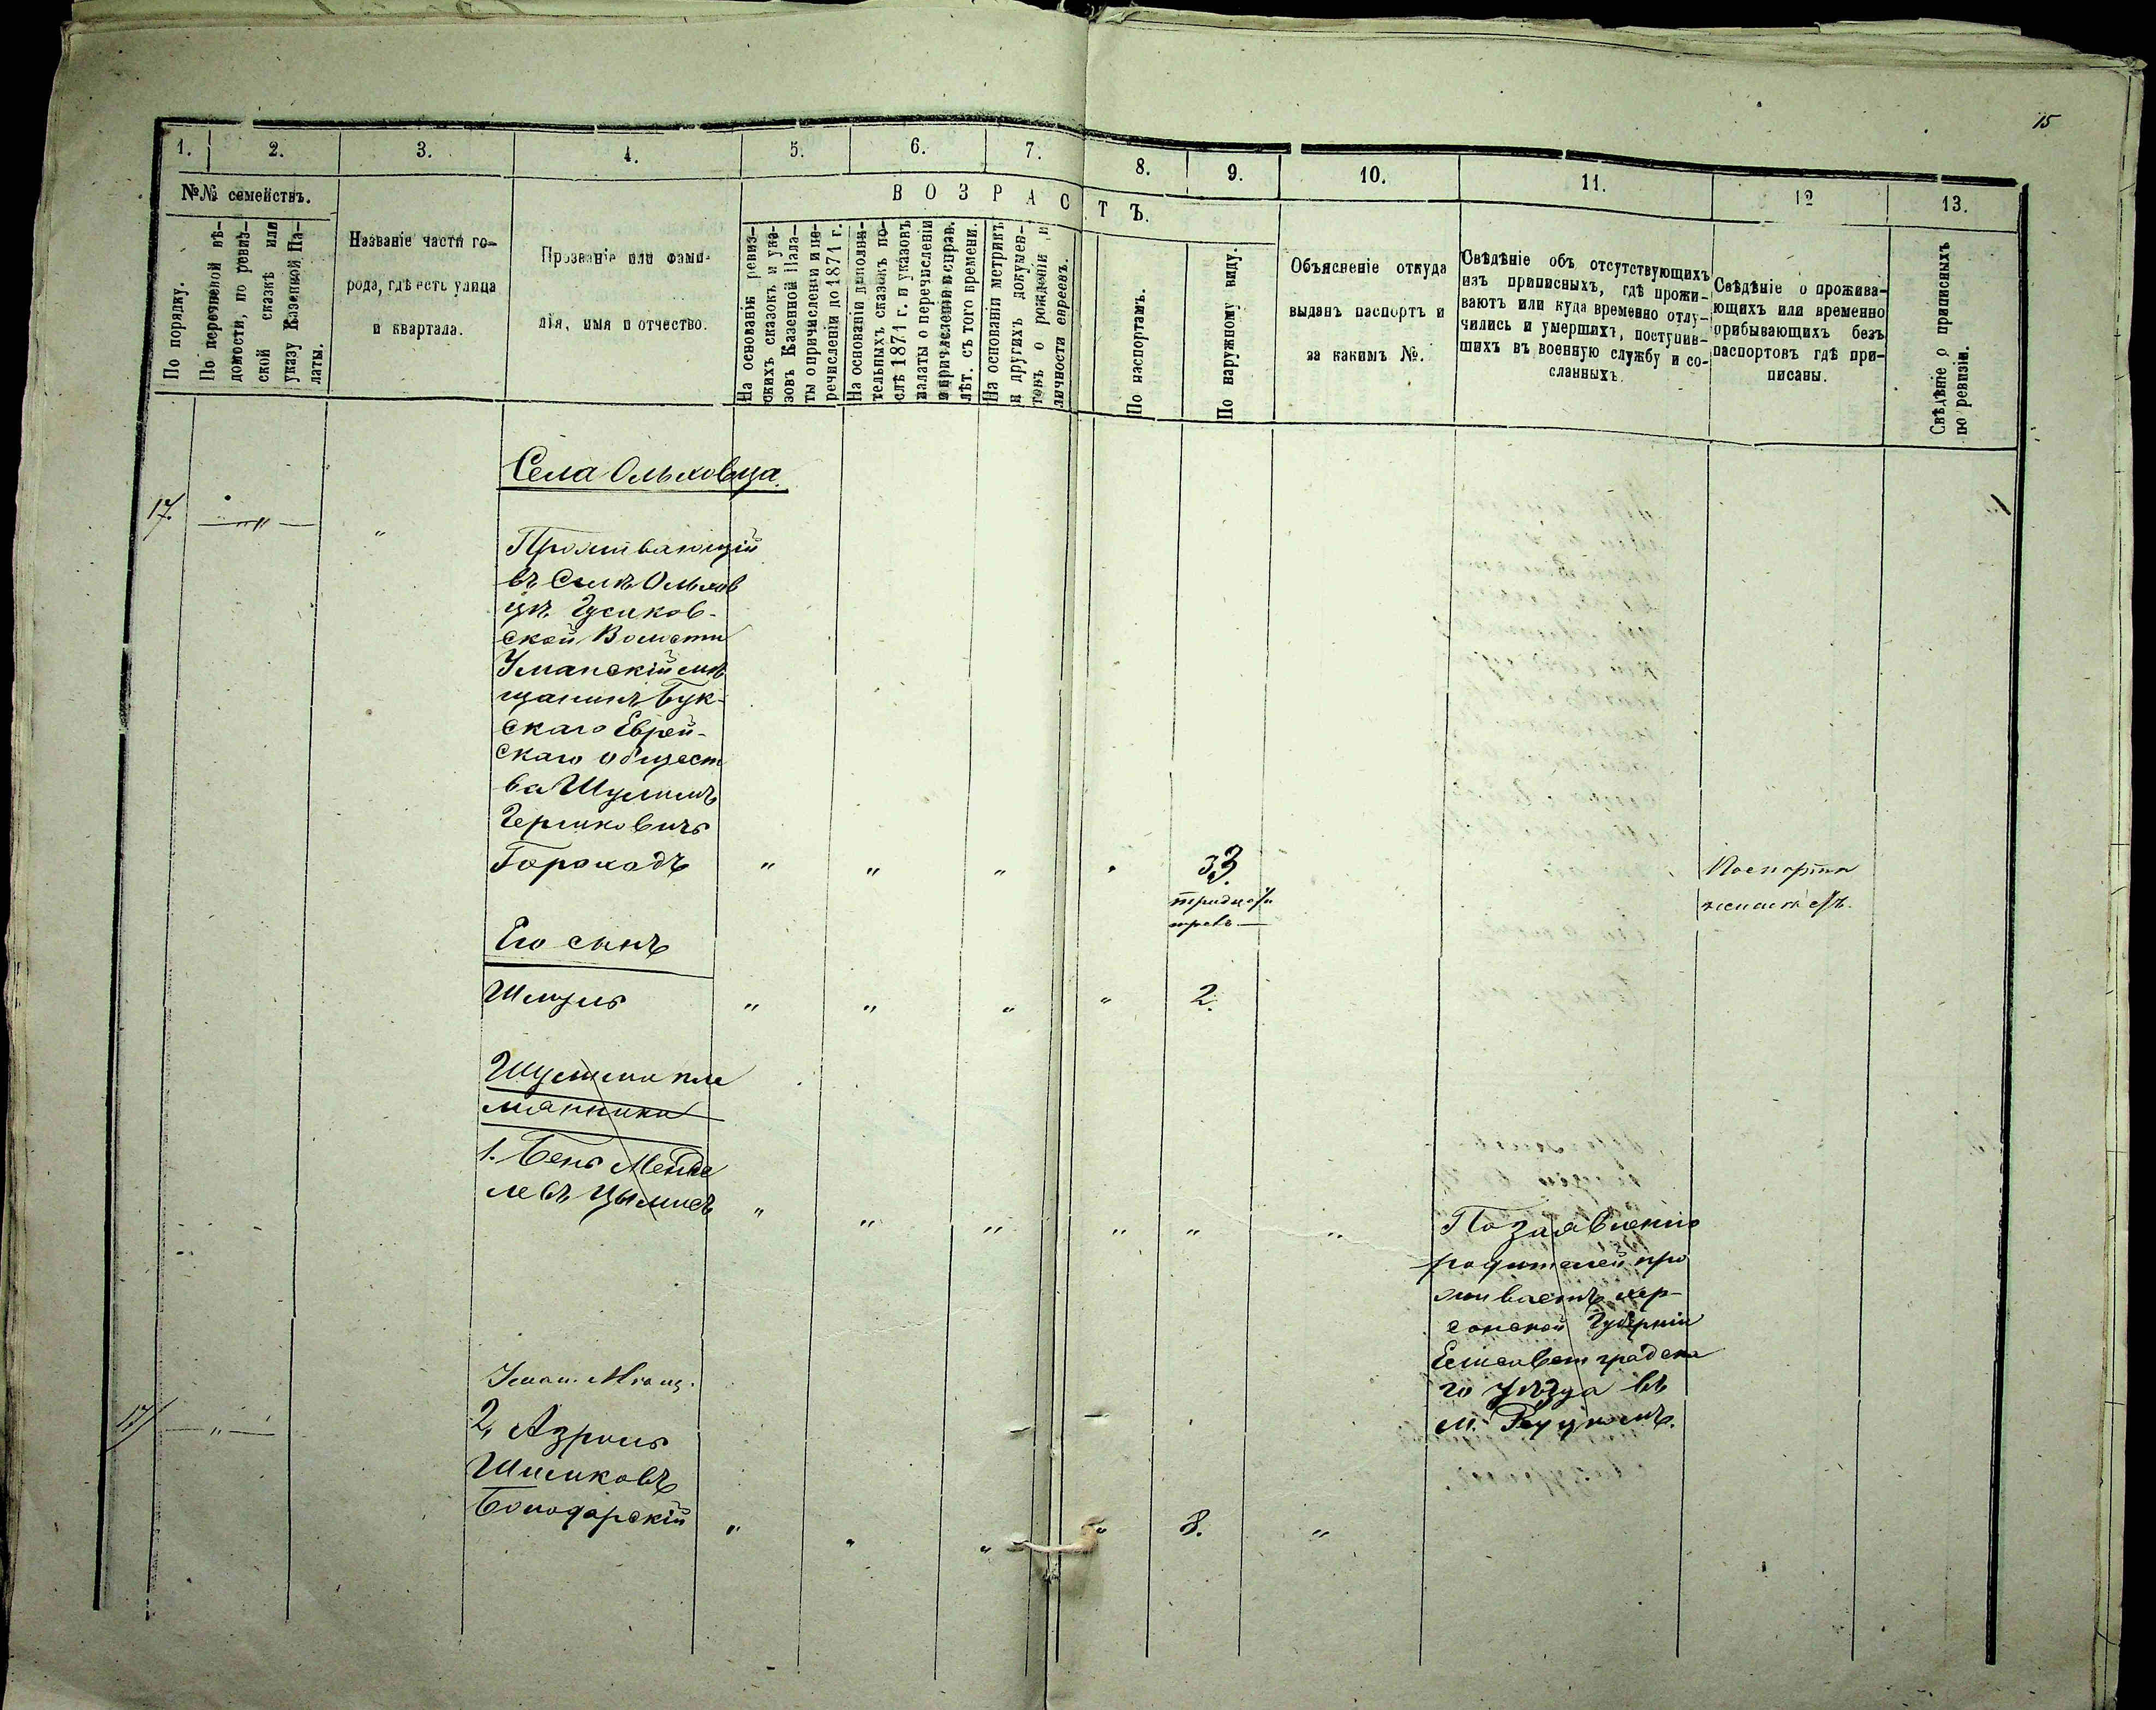 15
1. 2. 3. 4. 5. 6. 7. 8. 9. 10. 11. 12 13.
№№ семействъ.
По порядку.
По перечневой вѣ-
домости, по ревиз-
ской сказкѣ или
указу Казенной Па-
латы.
Названіе части го-
рода, гдѣ есть улица
и квартала.
Прозваніе или фами-
лія, имя и отчество.
ВОЗРАСТЪ.
На основаніи ревиз-
скихъ сказокъ и ука-
зовъ Казенной Пала-
ты о причисленіи и пе-
речисленіи до 1871 г.
На основаніи дополни-
тельныхъ сказокъ по-
слѣ 1871 г. и указовъ
палаты о перечисленіи
и причисленіи и справ.
лѣт. съ того времени.
На основаніи метрикъ
и другихъ докумен-
товъ о рожденіи и
личности евреевъ.
По паспортамъ.
По наружному виду.
Объясненіе откуда
выданъ паспортъ и
за какимъ №.
Свѣдѣніе объ отсутствующихъ
изъ приписныхъ, гдѣ прожи-
ваютъ или куда временно отлу-
чились и умершихъ, поступив-
шихъ въ военную службу и со-
сланныхъ.
Свѣдѣніе о прожива-
ющихъ или временно
прибывающихъ безъ
паспортовъ гдѣ при-
писаны.
Свѣдѣніе о приписныхъ
по ревизіи.
Села Ольховца.
17. — " — "
Проживающій
въ Селѣ Ольхов
цѣ Гусаков-
ской Волости
Уманскій мѣ
щанинъ Бук-
скаго Еврей-
скаго общест
ва Шулимъ
Гершковичъ
Гороходъ " " " " 33.
тридцать
три —
Его сынъ
Шмуль " " " " 2.
Шулима пле
мянники
1. Бень Менде
левъ " " " " " "
По заявленію
родителей про
живаетъ Хер-
сонской Губерніи
Елисаветградска
го уѣзда въ
м.
Уман. Мѣщ.
17/ — " —
2, Азриль
Шмиковъ
Бонодарскій " " " " 8. "